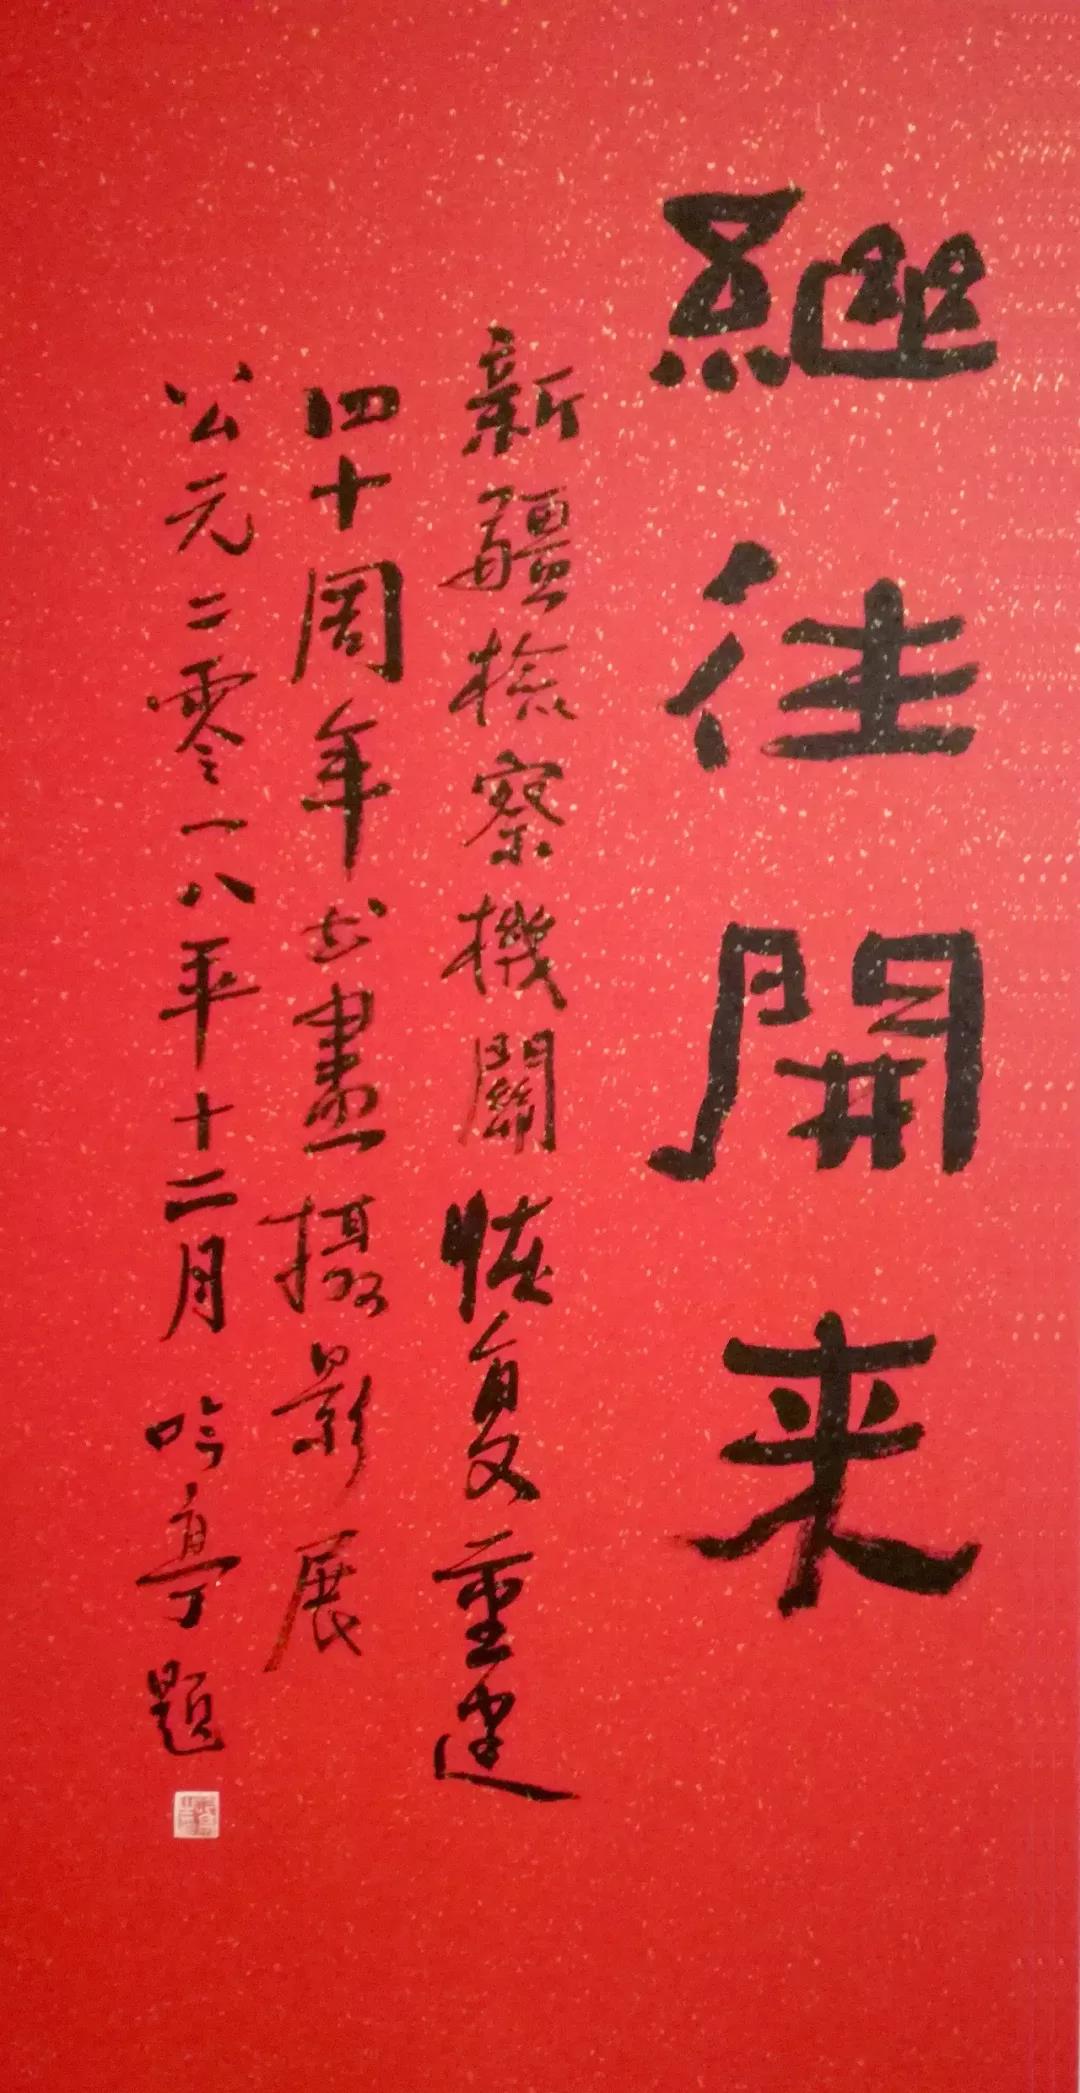 繼往開来
新疆檢察機關恢复重建
四十周年书畫摄影展
公元二零一八年十二月 吟亭題